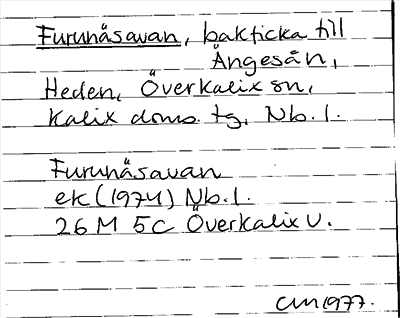 Furunäsavan, bakficka till
Ängesån,
Heden, Överkalix sn,
Kalix doms. tg, Nb. l.
Furunäsavan
ek (1974) Nb. l.
26 M 5c Överkalix V.
CM 1977.